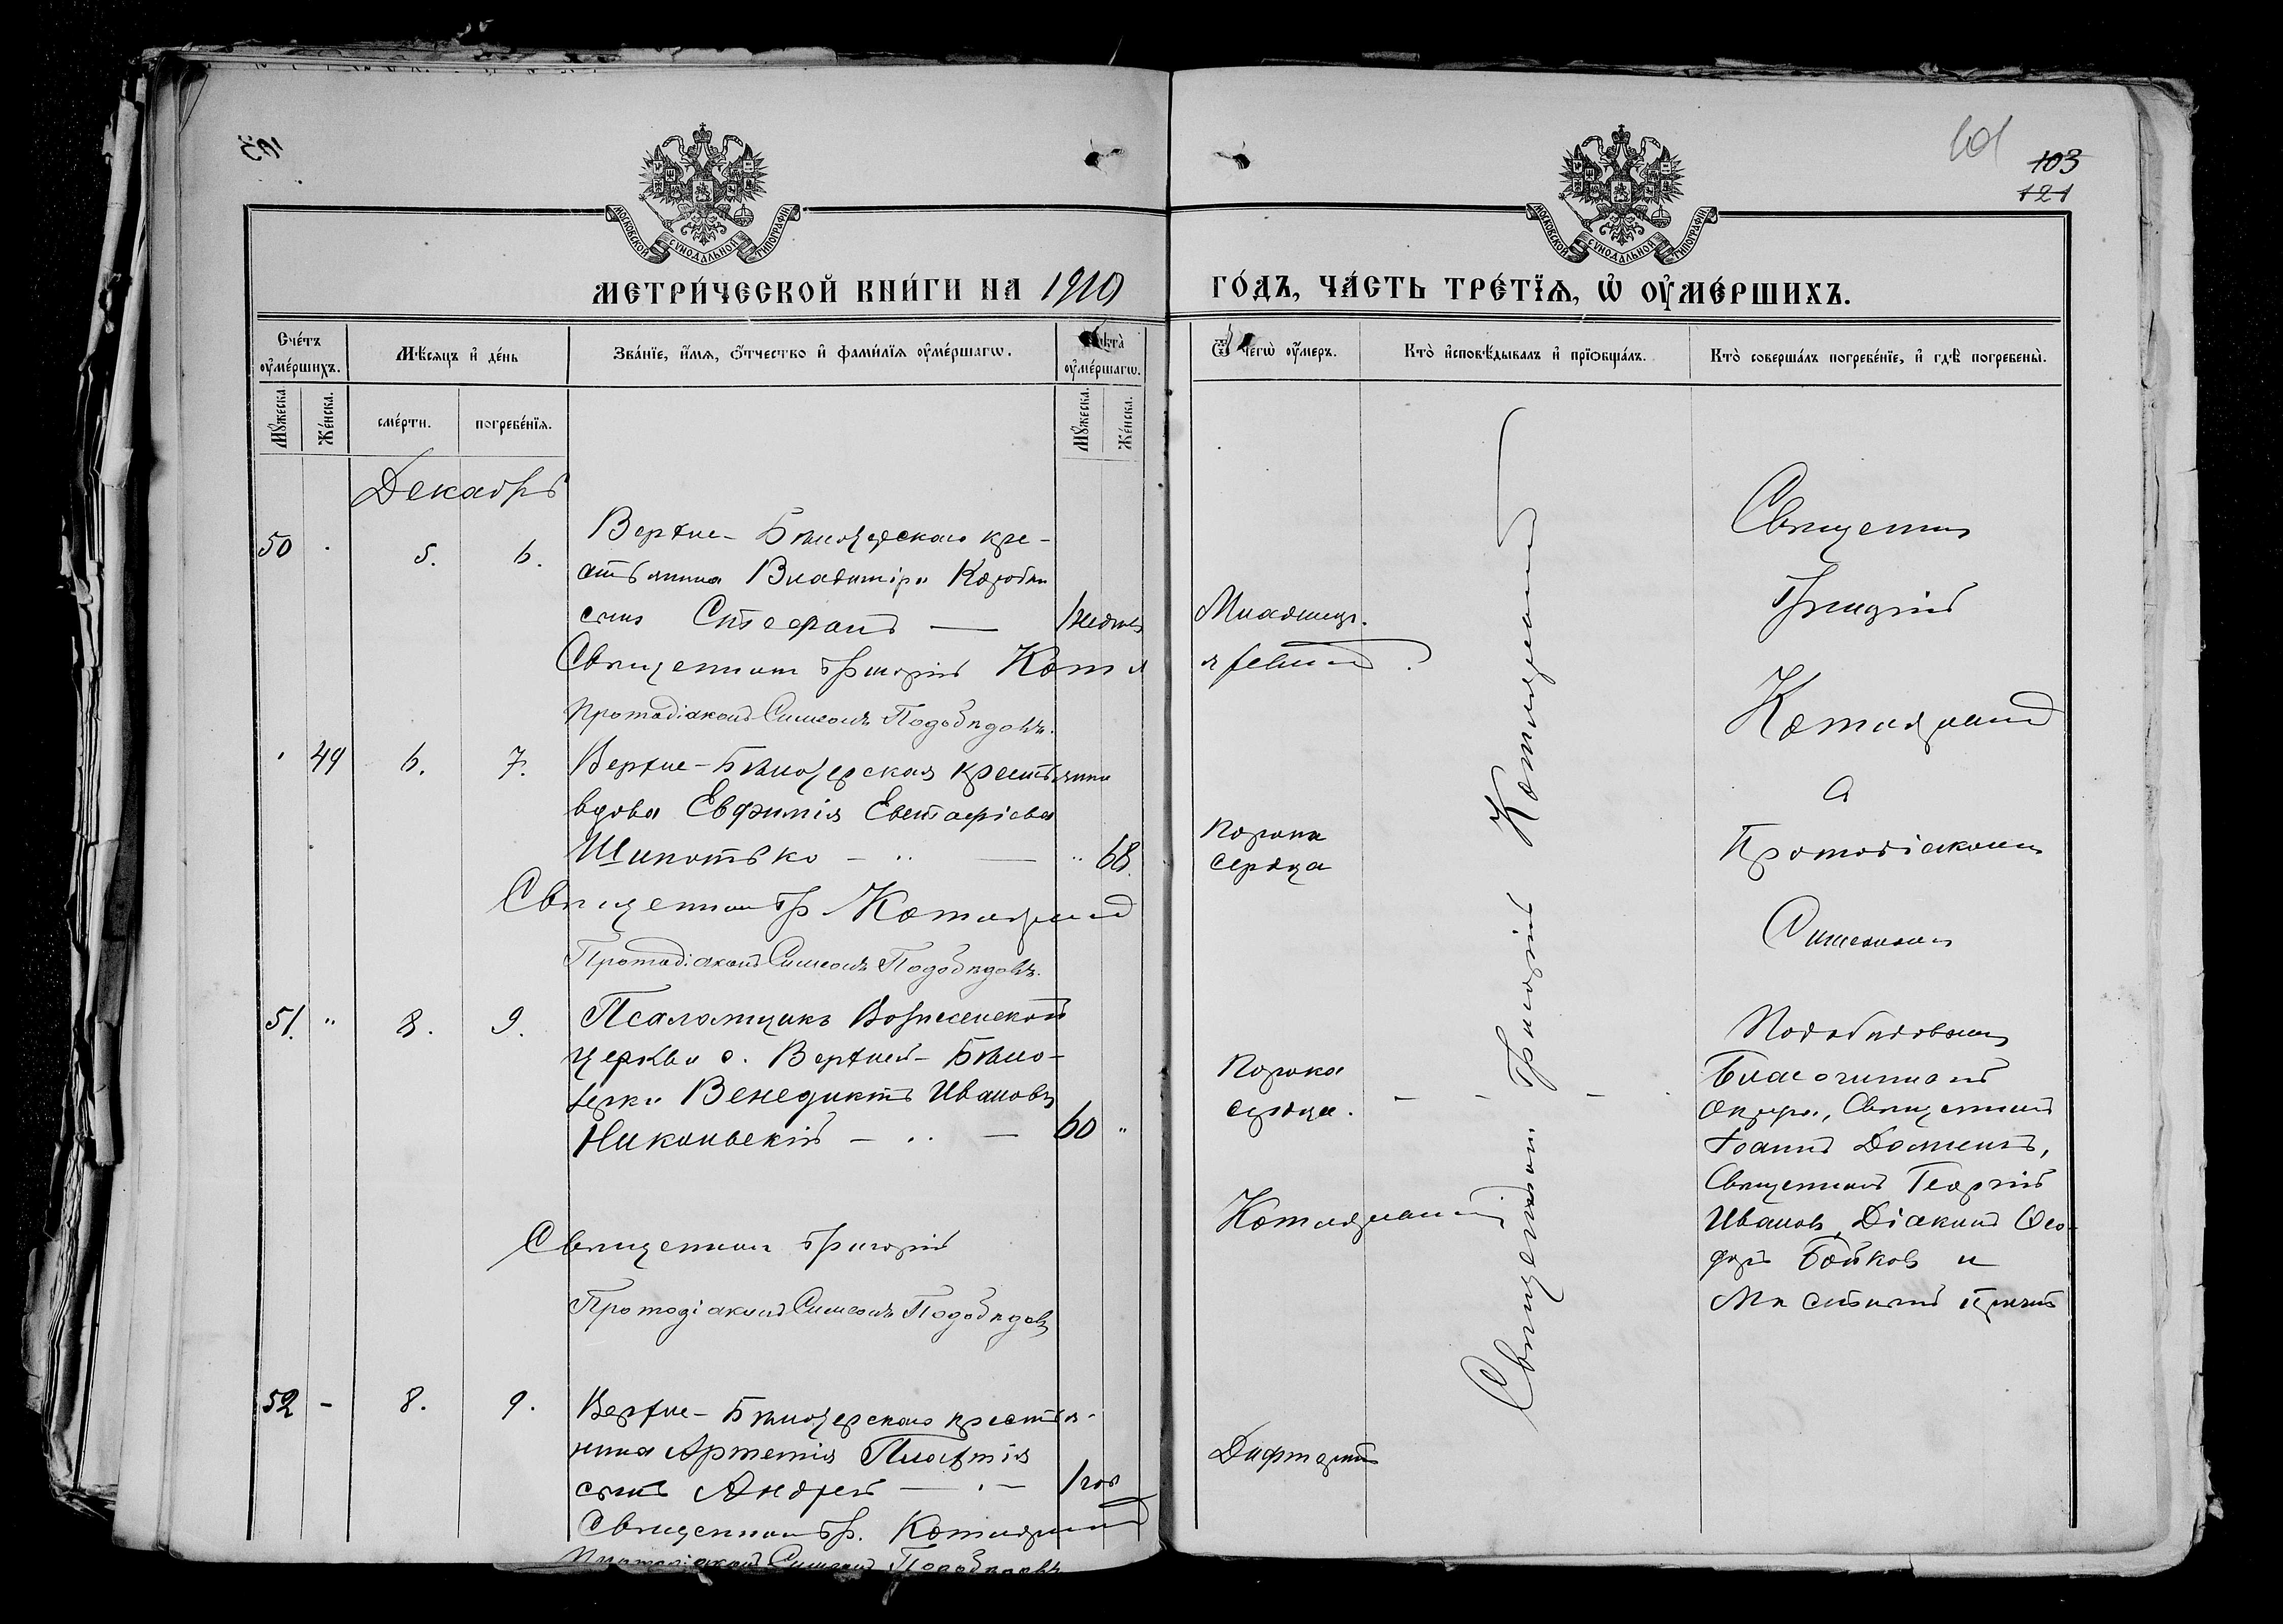 103
МОСКОВСКОЙ СѴНОДАЛЬНОЙ ТИПОГРАФІИ
МЕТРИ́ЧЕСКОЙ КНИ́ГИ НА 1910
Сче́тъ ᲂу҆ме́ршихъ.
Мѣ́сяцъ и҆ де́нь
Зва́нїе, и҆́мѧ, ѻ҆́тчество и҆ фами́лїѧ ᲂу҆ме́ршагѡ.
Лѣ́та ᲂу҆ме́ршагѡ.
Мꙋ́жеска.
Же́нска.
сме́рти.
погребе́нїѧ.
Мꙋ́жеска.
Же́нска.
Декабрь
50 . 5. 6. Верхне-Бѣлозерскаго кре-
стьянина Владимира
сынъ Стефанъ — 1 недѣл
Священникъ Григорій
Протодіаконъ Симеонъ Подобѣдовъ.
" 49 6. 7. Верхне-Бѣлозерская крестьянка
вдова Евфимія Евстафіева
Шипотько — " — " 68.
Священникъ Гр. Котляревскій
Протодіаконъ Симеонъ Подобѣдовъ.
51. " 8. 9. Псаломщикъ Вознесенской
церкви с. Верхней-Бѣло-
зерки Венедиктъ Ивановъ
Никольскій — " — 60 "
Священникъ Григорій
Протодіаконъ Симеонъ Подобѣдовъ
52 - 8. 9. Верхне-Бѣлозерскаго крестья-
нина Артемія
сынъ Андрей — . — 1 год
Священникъ Гр.
Протодіаконъ Симеонъ Подобѣдовъ
101
103
121
МОСКОВСКОЙ СѴНОДАЛЬНОЙ ТИПОГРАФІИ
ГО́ДЪ, ЧА́СТЬ ТРЕ́ТЇѦ, Ѡ҆ ОУ҆МЕ́РШИХЪ.
Ѿ чегѡ̀ ᲂу҆́меръ.
Кто̀ и҆сповѣ́дывалъ и҆ прїѡбща́лъ.
Кто̀ соверша́лъ погребе́нїе, и҆ гдѣ̀ погребены̀.
Младенч.
Порока
сердца
Порока
сердца. - - -
Дифтеритъ
Священникъ Григорій
Священникъ
Григорій
съ
Протодіакономъ
Симеономъ
Подобѣдовымъ
Благочинный
Округа, Священникъ
Іоаннъ
Священникъ Георгій
Ивановъ, Діаконъ Ѳео-
доръ Бойковъ и
Мѣстный причтъ